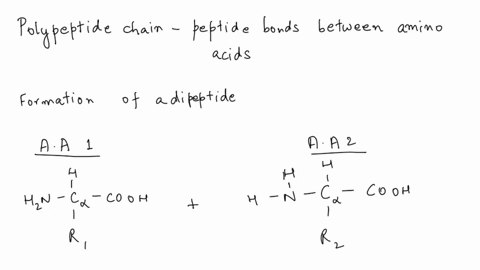 Polypeptide chain - peptide bonds between amino
acids
Formation of a dipeptide
A.A 1
A.A 2
H
H₂N - Cα - COOH
R₁
+
H
H
H - N - Cα - COOH
R₂